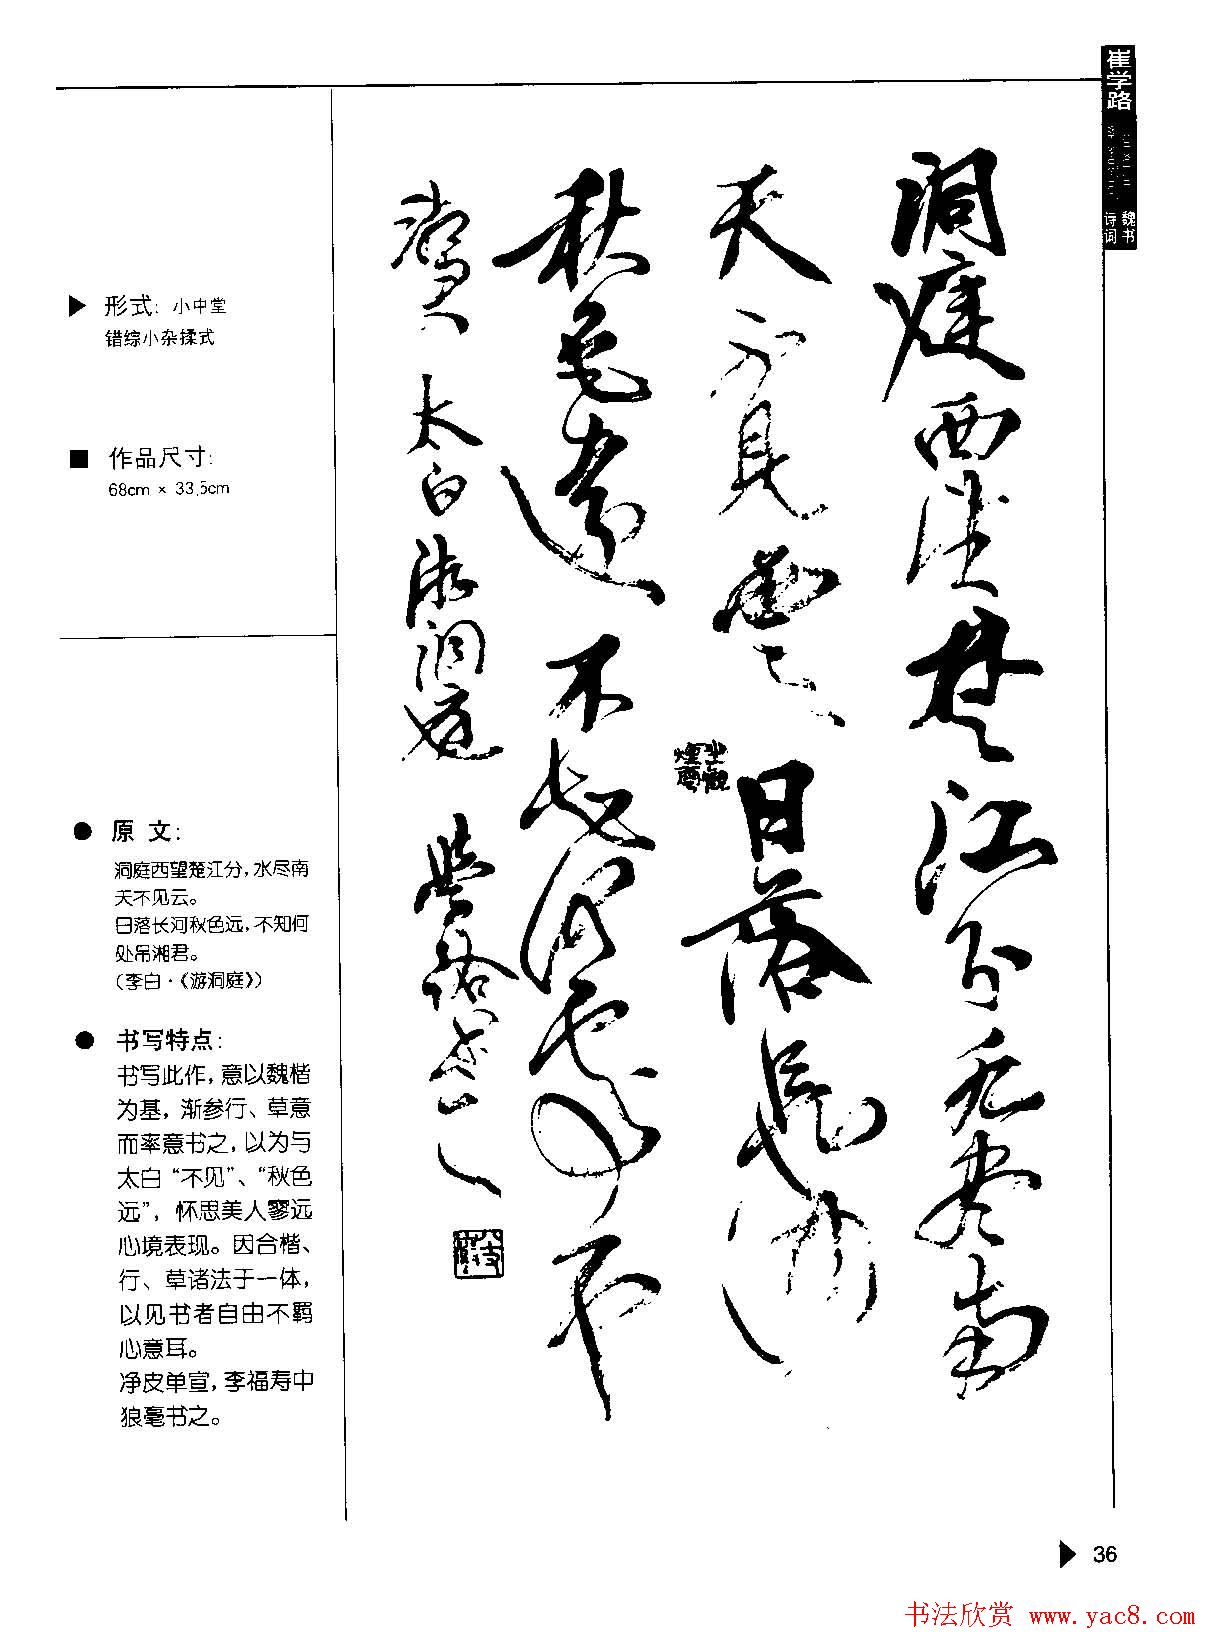 崔学路
魏书
诗词
形式：小中堂
错综小杂揉式
作品尺寸：
68cm × 33.5cm
原 文：
洞庭西望楚江分，水尽南
天不见云。
日落长河秋色远，不知何
处吊湘君。
（李白·《游洞庭》）
书写特点：
书写此作，意以魏楷
为基，渐参行、草意
而率意书之，以为与
太白“不见”、“秋色
远”，怀思美人寥远
心境表现。因合楷、
行、草诸法于一体，
以见书者自由不羁
心意耳。
净皮单宣，李福寿中
狼毫书之。
洞庭西望楚江分水尽南
天不见云日落长河
秋色远不知何处吊
湘君 太白游洞庭 学路书
36
书法欣赏 www.yac8.com